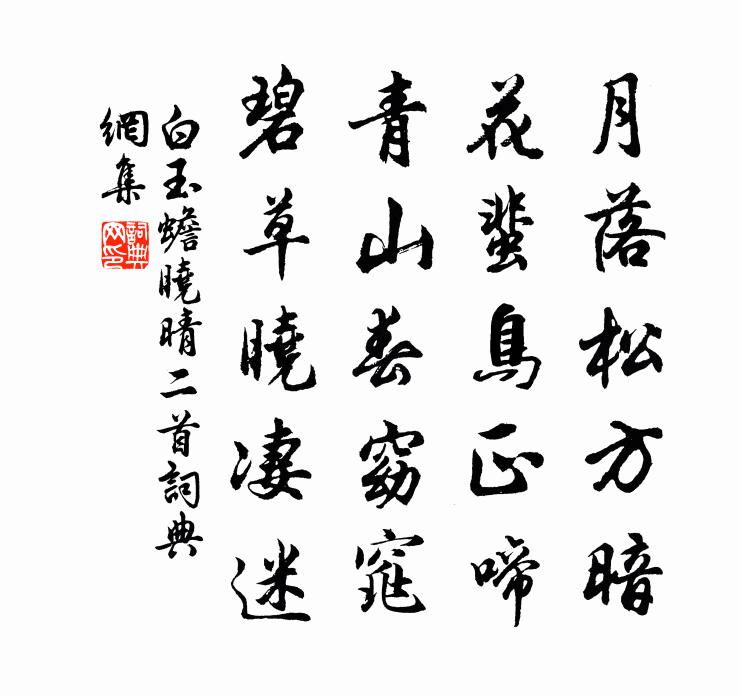 月落松方暗
花蜚鳥正啼
青山春窈窕
碧草曉淒迷
白玉蟾曉晴二首詞典
網集
詞典
网印